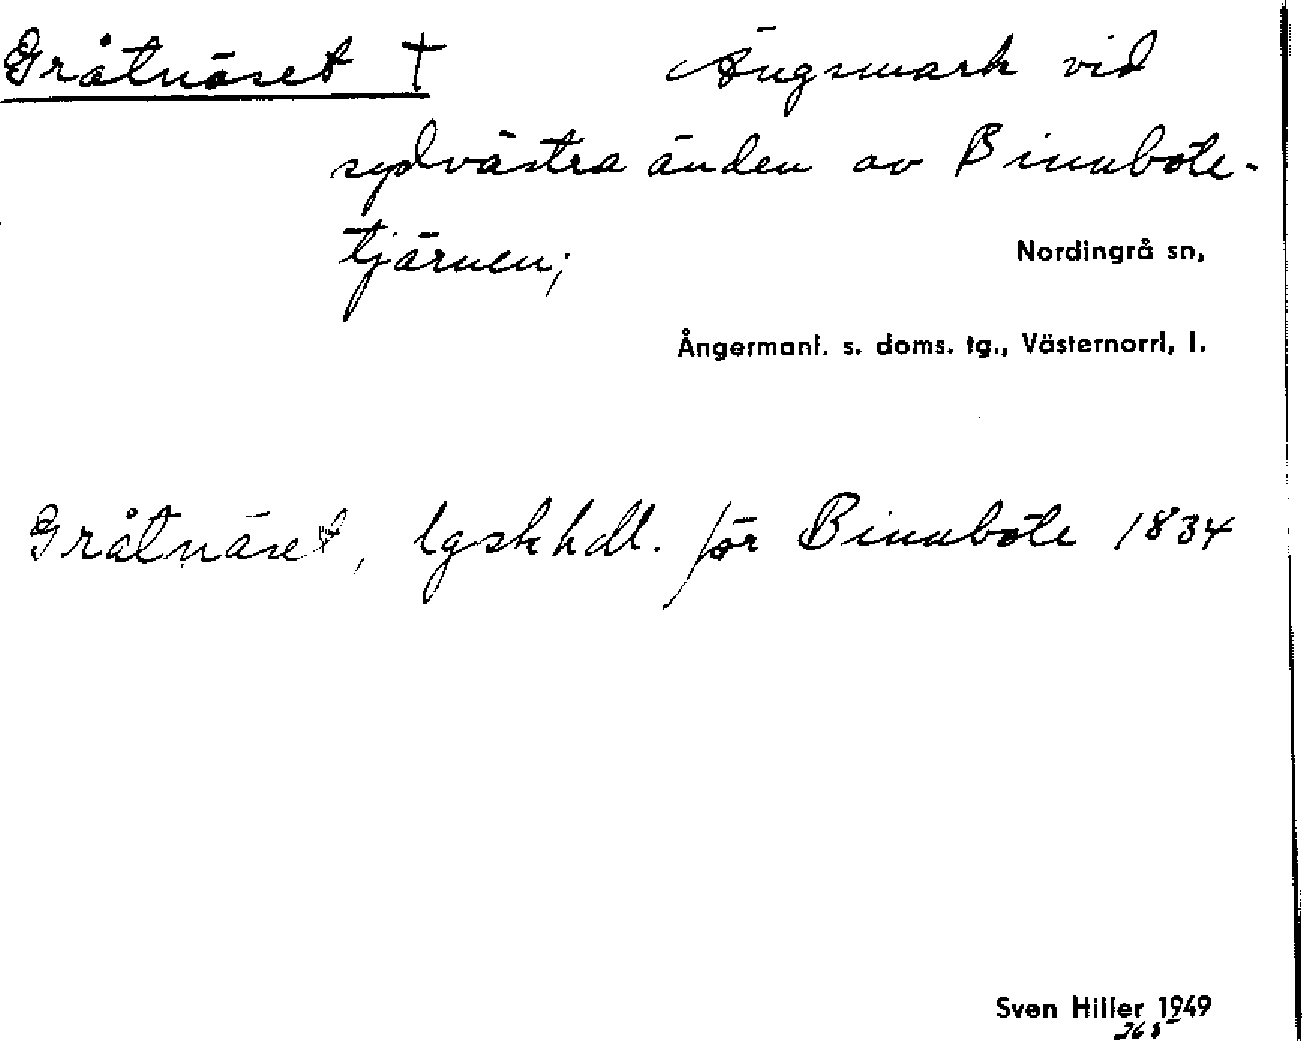 Gråtnäset † Ängsmark vid
sydvästra änden av Binnböle-
tjärnen;
Nordingrå sn,
Ångermanl. s. doms. tg., Västernorrl, l.
Gråtnäset, lgskhdl. för Binnböle 1834
Sven Hiller 1949
26 5